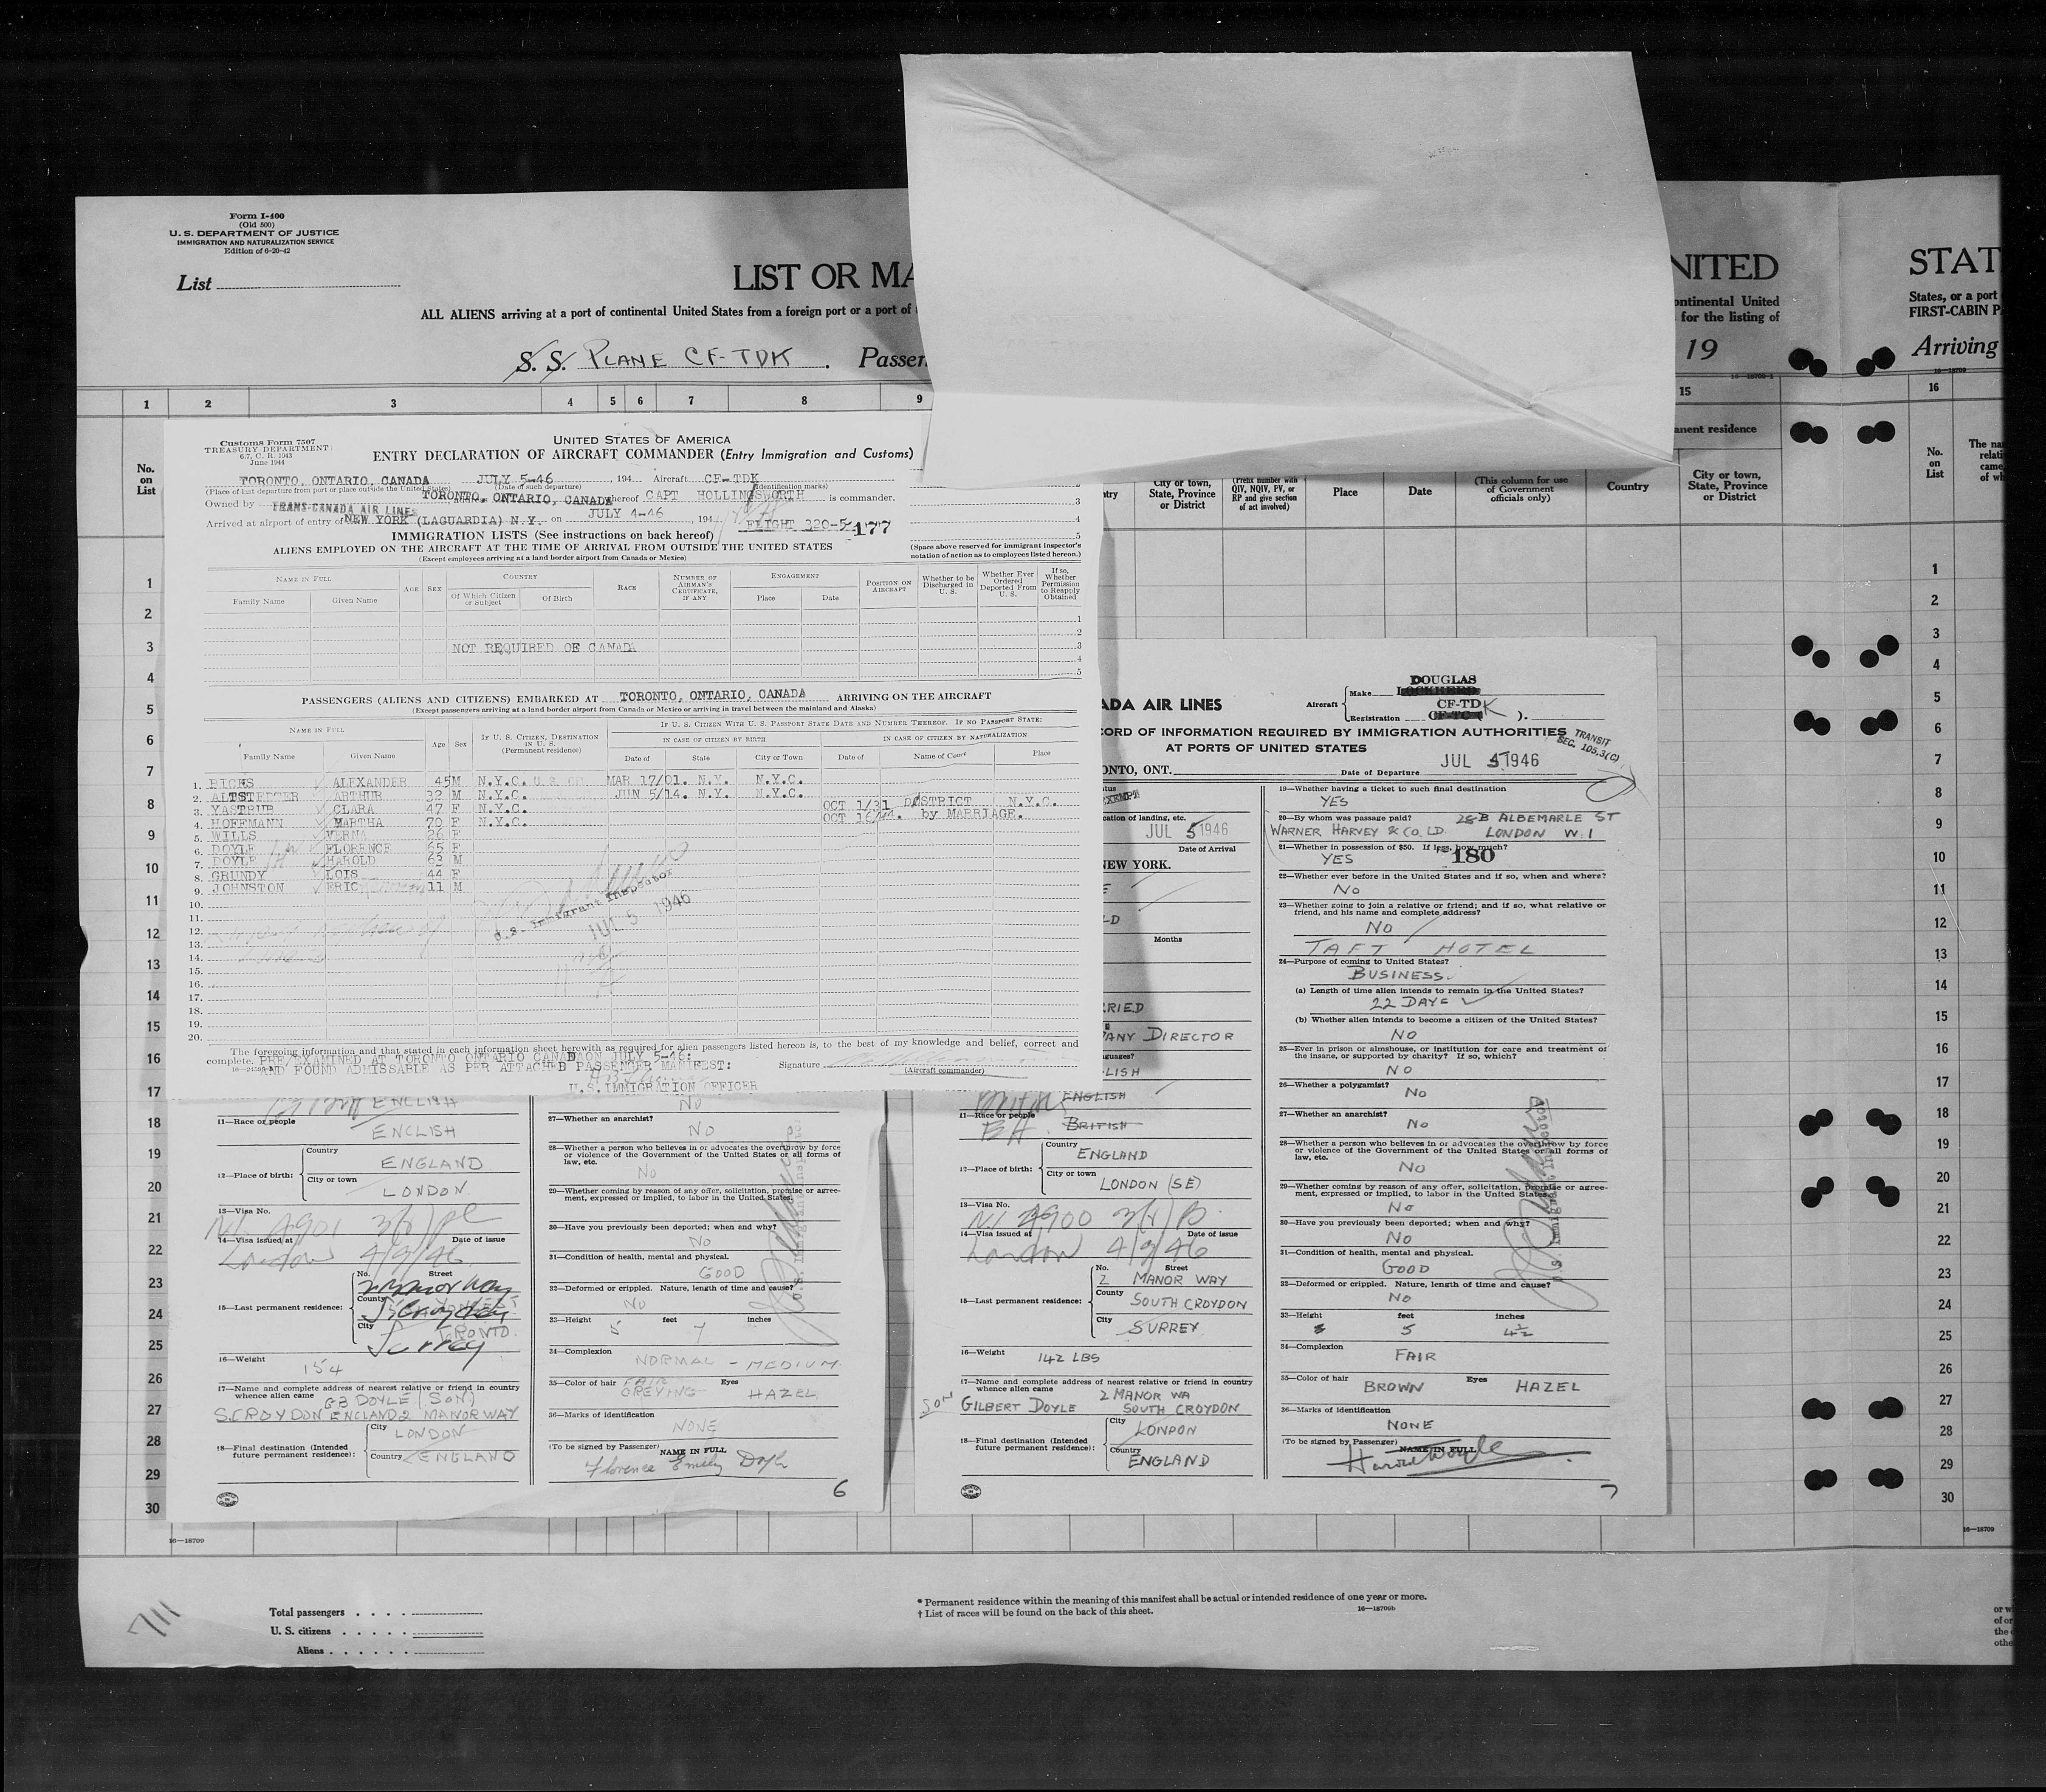 Form I-400
(Old 500)
U. S. DEPARTMENT OF JUSTICE
IMMIGRATION AND NATURALIZATION SERVICE
Edition of 6-20-42
List
LIST OR MA
ALL ALIENS arriving at a port of continental United States from a foreign port or a port of
S. S. PLANE CF-TDK. Passen
NITED
ontinental United
for the listing of
19
STAT
States, or a port
FIRST-CABIN P
Arriving
16—18709-1
16—18709
1 2 3 4 5 6 7 8 9 15 16
No.
on
List
Customs Form 7507
TREASURY DEPARTMENT
6.7, C. R. 1943
June 1944
UNITED STATES OF AMERICA
ENTRY DECLARATION OF AIRCRAFT COMMANDER (Entry Immigration and Customs)
TORONTO, ONTARIO, CANADA JULY 5-46 194 Aircraft CF-TDK
(Place of last departure from port or place outside the United States) (Date of such departure) (Identification marks)
Owned by TRANS-CANADA AIR LINES TORONTO, ONTARIO, CANADA whereof CAPT HOLLINGSWORTH is commander.
Arrived at airport of entry of NEW YORK (LAGUARDIA) N.Y. on JULY 4-46, 194
FLIGHT 320-5 177
IMMIGRATION LISTS (See instructions on back hereof)
ALIENS EMPLOYED ON THE AIRCRAFT AT THE TIME OF ARRIVAL FROM OUTSIDE THE UNITED STATES
(Except employees arriving at a land border airport from Canada or Mexico)
3
4
5
(Space above reserved for immigrant inspector's
notation of action as to employees listed hereon.)
NAME IN FULL
Family Name Given Name
AGE SEX
COUNTRY
Of Which Citizen or Subject
Of Birth
RACE
NUMBER OF AIRMAN'S CERTIFICATE, IF ANY
ENGAGEMENT
Place Date
POSITION ON AIRCRAFT
Whether to be Discharged in U. S.
Whether Ever Ordered Deported From U. S.
If so, Whether Permission to Reapply Obtained
1
2
NOT REQUIRED OF CANADA 3
4
5
PASSENGERS (ALIENS AND CITIZENS) EMBARKED AT TORONTO, ONTARIO, CANADA ARRIVING ON THE AIRCRAFT
(Except passengers arriving at a land border airport from Canada or Mexico or arriving in travel between the mainland and Alaska)
NAME IN FULL
Family Name Given Name
Age Sex
IF U. S. CITIZEN, DESTINATION IN U. S.
(Permanent residence)
IF U. S. CITIZEN WITH U. S. PASSPORT STATE DATE AND NUMBER THEREOF. IF NO PASSPORT STATE:
IN CASE OF CITIZEN BY BIRTH
Date of State City or Town
IN CASE OF CITIZEN BY NATURALIZATION
Date of Name of Court Place
1. RICHS ALEXANDER 45 M N.Y.C. MAR 17/01. N.Y. N.Y.C.
2. ALTSTEDTER ARTHUR 32 M N.Y.C. JUN 5/14. N.Y. N.Y.C.
3. YASTRUB CLARA 47 F N.Y.C. OCT 1/31 DISTRICT N.Y.C.
4. HOFFMANN MARTHA 70 F N.Y.C. by MARRIAGE.
5. WILLS VERNA 26 F
6. DOYLE FLORENCE 65 F
7. DOYLE HAROLD 63 M
8. GRUNDY LOIS 44 F
9. JOHNSTON ERIC 11 M
10.
11.
12.
13.
14.
15.
16.
17.
18.
19.
20.
U.S. Immigrant Inspector
JUL 5 1946
The foregoing information and that stated in each information sheet herewith as required for alien passengers listed hereon is, to the best of my knowledge and belief, correct and
complete. PRE/EXAMINED AT TORONTO ONTARIO CANADA ON JULY 5-46:
AND FOUND ADMISSABLE AS PER ATTACHED PASSENGER MANIFEST:
U.S. IMMIGRATION OFFICER
Signature
(Aircraft commander)
anent residence
City or town, State, Province or District
(Prefix number with QIV, NQIV, PV, or RP and give section of act involved)
Place
Date
(This column for use of Government officials only)
Country
City or town, State, Province or District
No.
on
List
ENGLISH
11—Race or people
ENGLISH
12—Place of birth:
Country
ENGLAND
City or town
LONDON
13—Visa No.
14—Visa issued at Date of issue
London 4/9/46
15—Last permanent residence:
No. Street
2 Manor Way
County
S Croydon
City
TORONTO.
Surrey
16—Weight
154
17—Name and complete address of nearest relative or friend in country
whence alien came
G B DOYLE (SON)
S. CROYDON ENGLAND 2 MANOR WAY
18—Final destination (Intended
future permanent residence):
City
LONDON
Country
ENGLAND
No
27—Whether an anarchist?
No
28—Whether a person who believes in or advocates the overthrow by force
or violence of the Government of the United States or all forms of
law, etc.
No
29—Whether coming by reason of any offer, solicitation, promise or agree-
ment, expressed or implied, to labor in the United States.
30—Have you previously been deported; when and why?
No
31—Condition of health, mental and physical.
GOOD
32—Deformed or crippled. Nature, length of time and cause?
No
33—Height feet inches
5 7
34—Complexion
NORMAL - MEDIUM
35—Color of hair Eyes
FAIR
GREYING HAZEL
36—Marks of identification
NONE
(To be signed by Passenger) NAME IN FULL
Florence Emily Doyle
6
ADA AIR LINES
Aircraft
Make DOUGLAS
Registration CF-TDK ).
CORD OF INFORMATION REQUIRED BY IMMIGRATION AUTHORITIES
AT PORTS OF UNITED STATES
TRANSIT
SEC. 105.3(C)
ONTO, ONT.
JUL 5 1946
Date of Departure
EXEMPT
cation of landing, etc.
JUL 5 1946
Date of Arrival
NEW YORK.
LD
Months
RRIED
PANY DIRECTOR
nguages?
LISH
ENGLISH
11—Race or people
BRITISH
12—Place of birth:
Country
ENGLAND
City or town
LONDON (SE)
13—Visa No.
14—Visa issued at Date of issue
London 4/9/46
15—Last permanent residence:
No. Street
2 MANOR WAY
County
SOUTH CROYDON
City
SURREY
16—Weight
142 LBS
17—Name and complete address of nearest relative or friend in country
whence alien came
2 MANOR WA
SON GILBERT DOYLE SOUTH CROYDON
18—Final destination (Intended
future permanent residence):
City
LONDON
Country
ENGLAND
19—Whether having a ticket to such final destination
YES
20—By whom was passage paid? 28-B ALBEMARLE ST
WARNER HARVEY & CO. LD. LONDON W.1
21—Whether in possession of $50. If less, how much?
YES 180
22—Whether ever before in the United States and if so, when and where?
No
23—Whether going to join a relative or friend; and if so, what relative or
friend, and his name and complete address?
No
TAFT HOTEL
24—Purpose of coming to United States?
BUSINESS.
(a) Length of time alien intends to remain in the United States?
22 DAYS
(b) Whether alien intends to become a citizen of the United States?
NO
25—Ever in prison or almshouse, or institution for care and treatment of
the insane, or supported by charity? If so, which?
NO
26—Whether a polygamist?
No
27—Whether an anarchist?
No
28—Whether a person who believes in or advocates the overthrow by force
or violence of the Government of the United States or all forms of
law, etc.
No
29—Whether coming by reason of any offer, solicitation, promise or agree-
ment, expressed or implied, to labor in the United States.
No
30—Have you previously been deported; when and why?
No
31—Condition of health, mental and physical.
GOOD
32—Deformed or crippled. Nature, length of time and cause?
No
33—Height feet inches
5 4½
34—Complexion
FAIR
35—Color of hair Eyes
BROWN HAZEL
36—Marks of identification
NONE
(To be signed by Passenger) NAME IN FULL
Harold Doyle
7
16—18709
16—18709
711
Total passengers
U. S. citizens
Aliens
* Permanent residence within the meaning of this manifest shall be actual or intended residence of one year or more.
† List of races will be found on the back of this sheet.
16—18709b